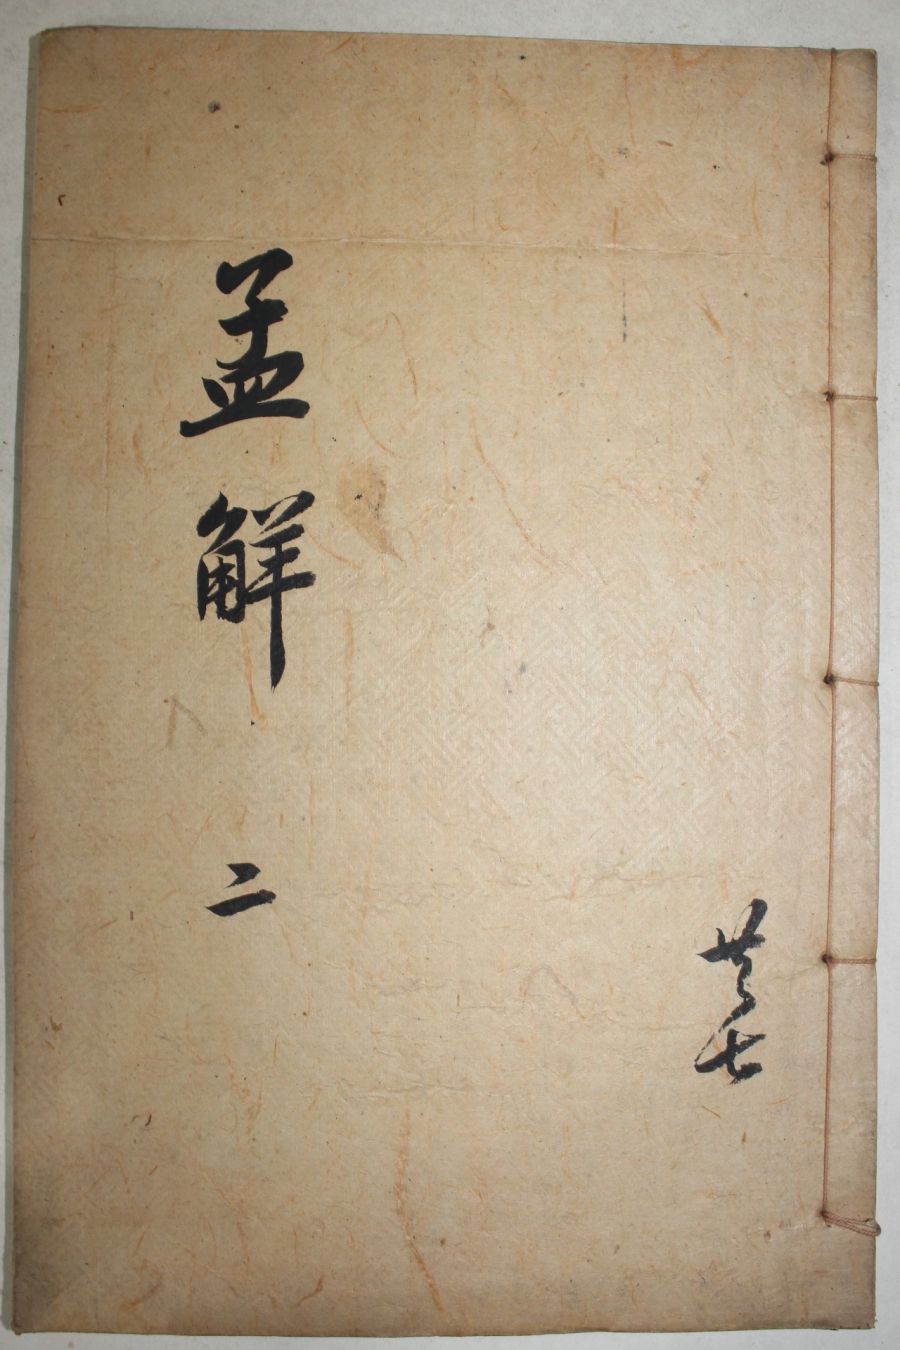 孟觧 二
共七